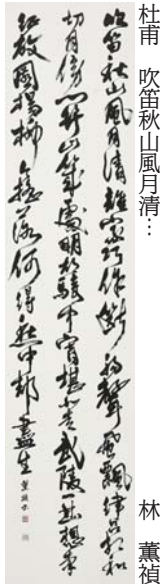 杜甫　吹笛秋山風月清…　林　薫禎
吹笛秋山風月清誰家巧作斷腸聲風飄律呂相和
切月傍關山幾處明胡騎中宵堪北走武陵一曲想南
征故園楊柳今搖落何得愁中却盡生　薫禎